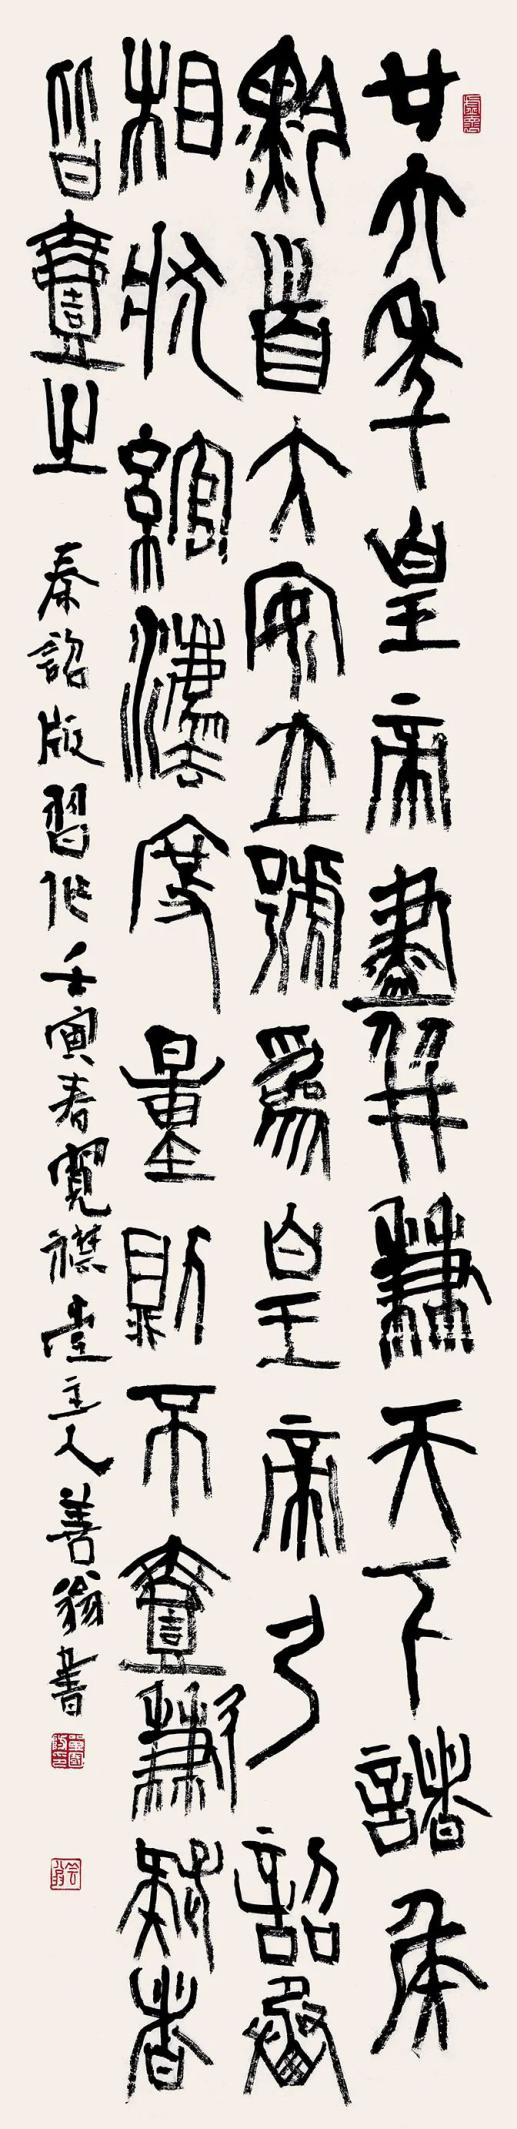 廿六年皇帝盡并兼天下諸侯
黔首大安立號為皇帝乃詔丞
相狀綰灋度量則不壹歉疑者
皆壹之 秦詔版習作壬寅春寬襟堂主人善翁書